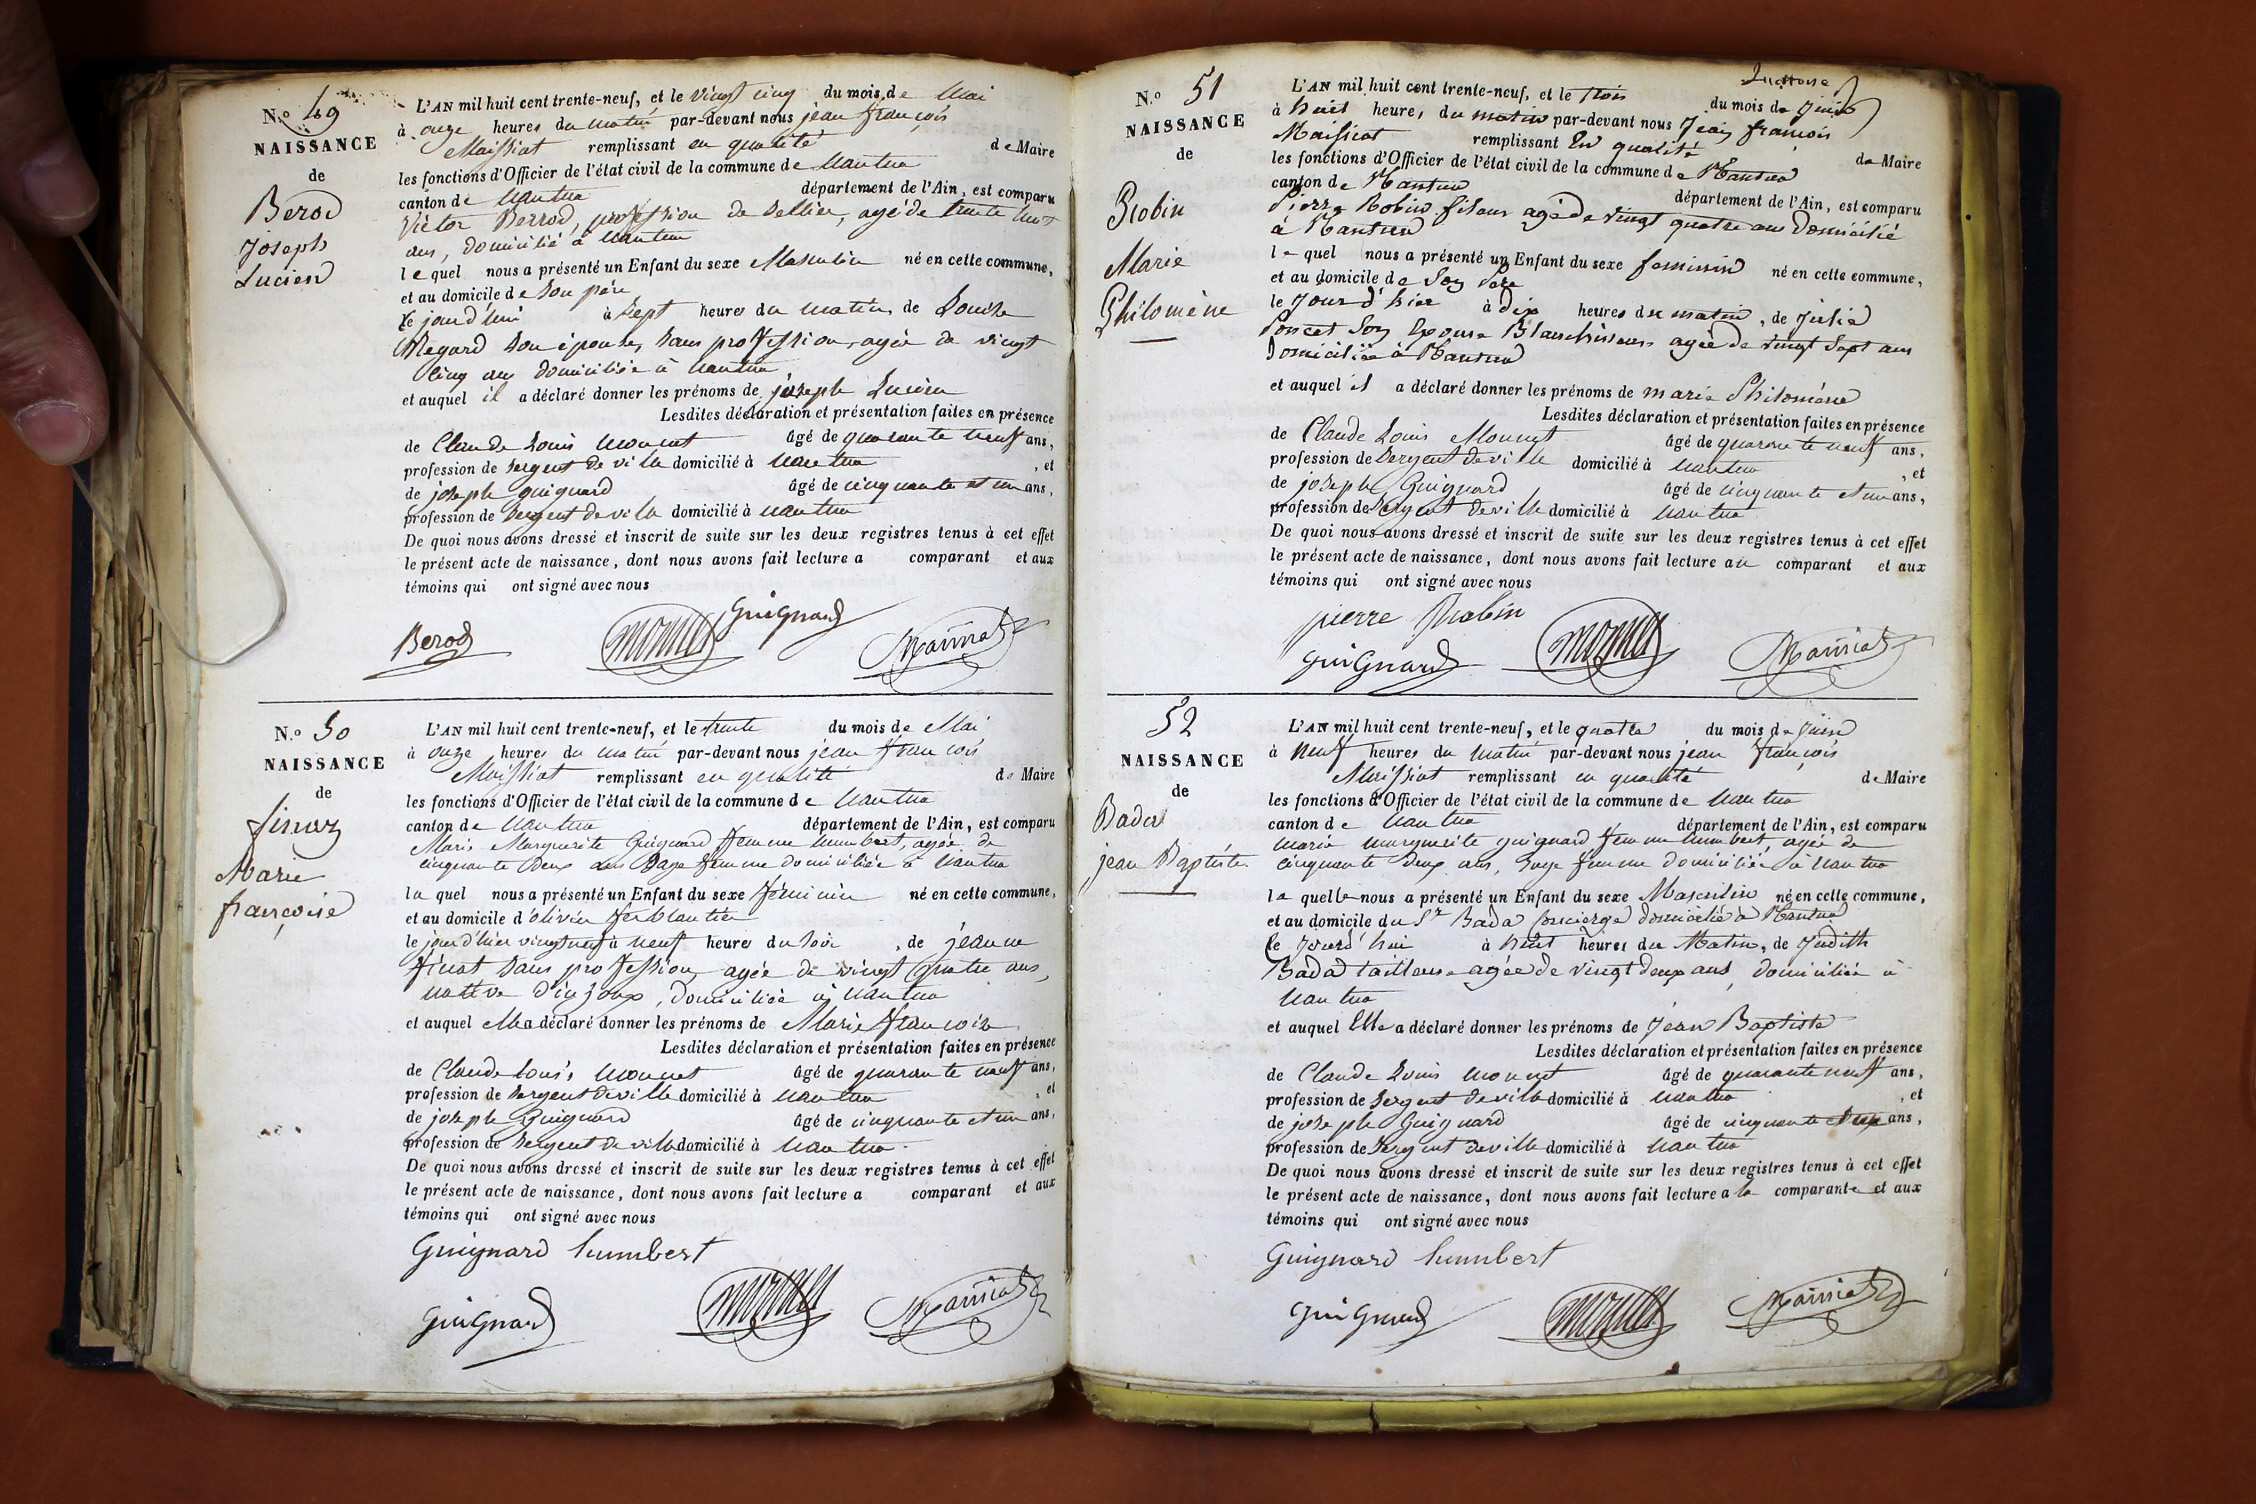 N.o 49
NAISSANCE
de
Berod
Joseph
Lucien
L'AN mil huit cent trente-neuf, et le vingt cinq du mois de Mai
à onze heures du matin par-devant nous jean françois
Maissiat remplissant en qualité de Maire
les fonctions d'Officier de l'état civil de la commune de Nantua
canton de Nantua département de l'Ain, est comparu
Victor Berrod, profession de Sellier, agé de trente huit
ans, domicilié à Nantua
le quel nous a présenté un Enfant du sexe Masculin né en cette commune,
et au domicile de Son père
le jourd'hui à Sept heures du matin, de Louise
Regard Son épouse, Sans profession, agée de vingt
cinq ans domiciliée à Nantua
et auquel il a déclaré donner les prénoms de joseph Lucien
Lesdites déclaration et présentation faites en présence
de Claude Louis Monnet âgé de quarante neuf ans,
profession de Sergent de ville domicilié à Nantua, et
de joseph guignard âgé de cinquante et un ans,
profession de Sergent de ville domicilié à Nantua
De quoi nous avons dressé et inscrit de suite sur les deux registres tenus à cet effet
le présent acte de naissance, dont nous avons fait lecture a comparant et aux
témoins qui ont signé avec nous
Guignard
Berod monnet Maissiat
N.o 50
NAISSANCE
de
finaz
Marie
françoise
L'AN mil huit cent trente-neuf, et le trente du mois de Mai
à onze heures du matin par-devant nous jean françois
Maissiat remplissant en qualité de Maire
les fonctions d'Officier de l'état civil de la commune de Nantua
canton de Nantua département de l'Ain, est comparu
Marie Marguerite Guignard femme humbert, agée de
cinquante Deux ans Sage femme domiciliée à Nantua
la quel nous a présenté un Enfant du sexe féminin né en cette commune,
et au domicile d'olivier ferblantier
le jour d'hier vingt neuf à neuf heures du Soir, de jeanne
finat Sans profession, agée de vingt quatre ans,
native d'injoux, domiciliée à Nantua
et auquel Elle a déclaré donner les prénoms de Marie françoise
Lesdites déclaration et présentation faites en présence
de Claude Louis Monnet âgé de quarante neuf ans,
profession de Sergent de ville domicilié à Nantua, et
de joseph Guignard âgé de cinquante et un ans,
profession de Sergent de ville domicilié à Nantua
De quoi nous avons dressé et inscrit de suite sur les deux registres tenus à cet effet
le présent acte de naissance, dont nous avons fait lecture a comparant et aux
témoins qui ont signé avec nous
Guignard humbert
Guignard monnet Maissiat
N.o 51
NAISSANCE
de
Robin
Marie
Philomène
L'AN mil huit cent trente-neuf, et le trois du mois de Juin
à huit heures du matin par-devant nous Jean françois
Maissiat remplissant En qualité de Maire
les fonctions d'Officier de l'état civil de la commune de Nantua
canton de Nantua département de l'Ain, est comparu
Pierre Robin fileur agé de vingt quatre ans Domicilié
à Nantua
le quel nous a présenté un Enfant du sexe feminin né en cette commune,
et au domicile de Son Père
le Jour d'hier à Dix heures du matin, de Julie
Poncet Son Epouse Blanchisseuse agée de vingt Sept ans
Domiciliée à Nantua
et auquel il a déclaré donner les prénoms de marie Philomène
Lesdites déclaration et présentation faites en présence
de Claude Louis Monnet âgé de quarante neuf ans,
profession de Sergent de ville domicilié à Nantua, et
de joseph Guignard âgé de cinquante et un ans,
profession de Sergent de ville domicilié à Nantua
De quoi nous avons dressé et inscrit de suite sur les deux registres tenus à cet effet
le présent acte de naissance, dont nous avons fait lecture au comparant et aux
témoins qui ont signé avec nous
pierre Robin
Guignard monnet Maissiat
52
NAISSANCE
de
Badas
jean Baptiste
L'AN mil huit cent trente-neuf, et le quatre du mois de Juin
à neuf heures du matin par-devant nous jean françois
Maissiat remplissant en qualité de Maire
les fonctions d'Officier de l'état civil de la commune de Nantua
canton de Nantua département de l'Ain, est comparu
marie marguerite guignard femme humbert, agée de
cinquante deux ans, Sage femme domiciliée à Nantua
la quelle nous a présenté un Enfant du sexe Masculin né en cette commune,
et au domicile du Sr Badas Concierge domicilié à Nantua
le Jourd'hui à huit heures du Matin, de Judith
Badas tailleuse agée de vingt deux ans, domiciliée à
Nantua
et auquel Elle a déclaré donner les prénoms de Jean Baptiste
Lesdites déclaration et présentation faites en présence
de Claude Louis Monnet âgé de quarante neuf ans,
profession de Sergent de ville domicilié à Nantua, et
de joseph Guignard âgé de cinquante ans,
profession de Sergent de ville domicilié à Nantua
De quoi nous avons dressé et inscrit de suite sur les deux registres tenus à cet effet
le présent acte de naissance, dont nous avons fait lecture a la comparante et aux
témoins qui ont signé avec nous
Guignard humbert
Guignard monnet Maissiat